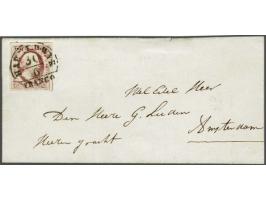 FRANCO
Wel Edel Heer
Den Heere G. Luden
Heeren gracht Amsterdam